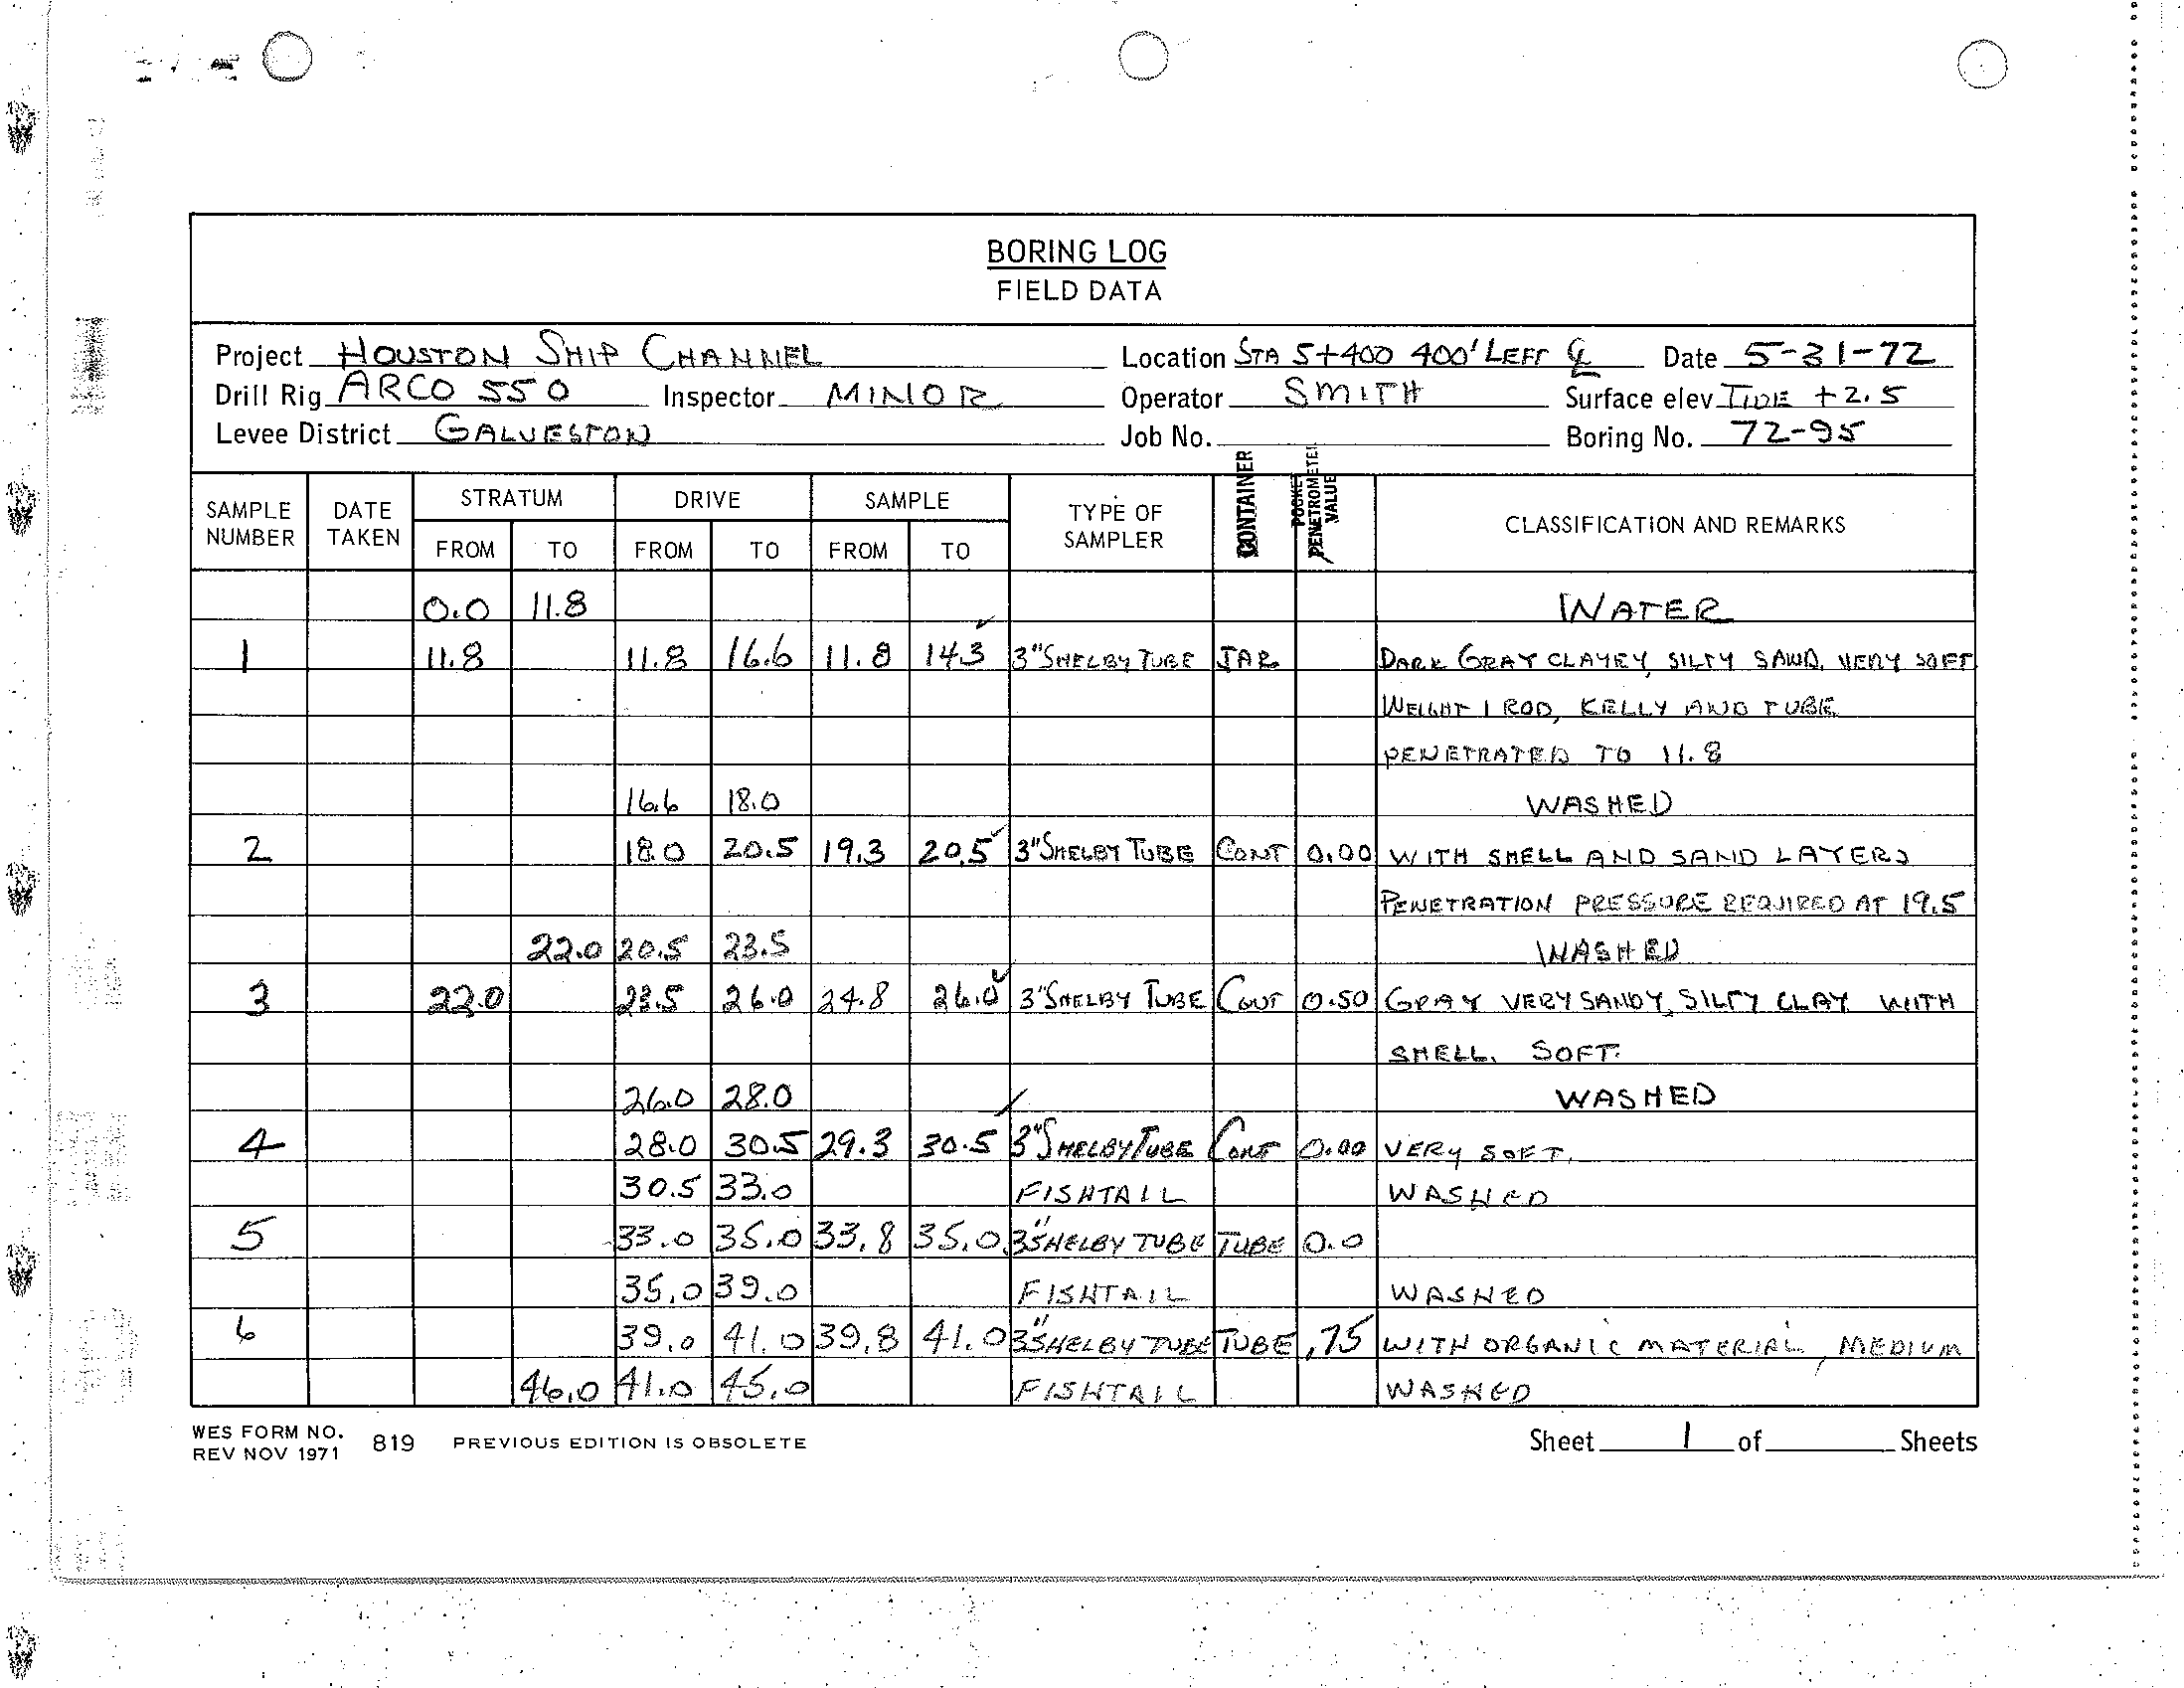 BORING LOG
FIELD DATA
Project HOUSTON SHIP CHANNEL Location STA 5+400 400' LEFT ℄ Date 5-31-72
Drill Rig ARCO 550 Inspector MINOR Operator SMITH Surface elev TIDE +2.5
Levee District GALVESTON Job No. Boring No. 72-95
SAMPLE NUMBER DATE TAKEN STRATUM FROM TO DRIVE FROM TO SAMPLE FROM TO TYPE OF SAMPLER CONTAINER POCKET PENETROMETER VALUE CLASSIFICATION AND REMARKS
0.0 11.8 WATER
1 11.8 11.8 16.6 11.8 14.3 3" SHELBY TUBE JAR DARK GRAY CLAYEY, SILTY SAND, VERY SOFT
WEIGHT 1 ROD, KELLY AND TUBE
PENETRATED TO 11.8
16.6 18.0 WASHED
2 18.0 20.5 19.3 20.5 3" SHELBY TUBE CONT 0.00 WITH SHELL AND SAND LAYERS
PENETRATION PRESSURE REQUIRED AT 19.5
22.0 20.5 23.5 WASHED
3 22.0 23.5 26.0 24.8 26.0 3" SHELBY TUBE CONT 0.50 GRAY VERY SANDY, SILTY CLAY WITH
SHELL. SOFT.
26.0 28.0 WASHED
4 28.0 30.5 29.3 30.5 3" SHELBY TUBE CONT 0.00 VERY SOFT.
30.5 33.0 FISHTAIL WASHED
5 33.0 35.0 33.8 35.0 3" SHELBY TUBE TUBE 0.0
35.0 39.0 FISHTAIL WASHED
6 39.0 41.0 39.8 41.0 3" SHELBY TUBE TUBE .75 WITH ORGANIC MATERIAL, MEDIUM
46.0 41.0 45.0 FISHTAIL WASHED
WES FORM NO. 819 PREVIOUS EDITION IS OBSOLETE Sheet 1 of Sheets
REV NOV 1971